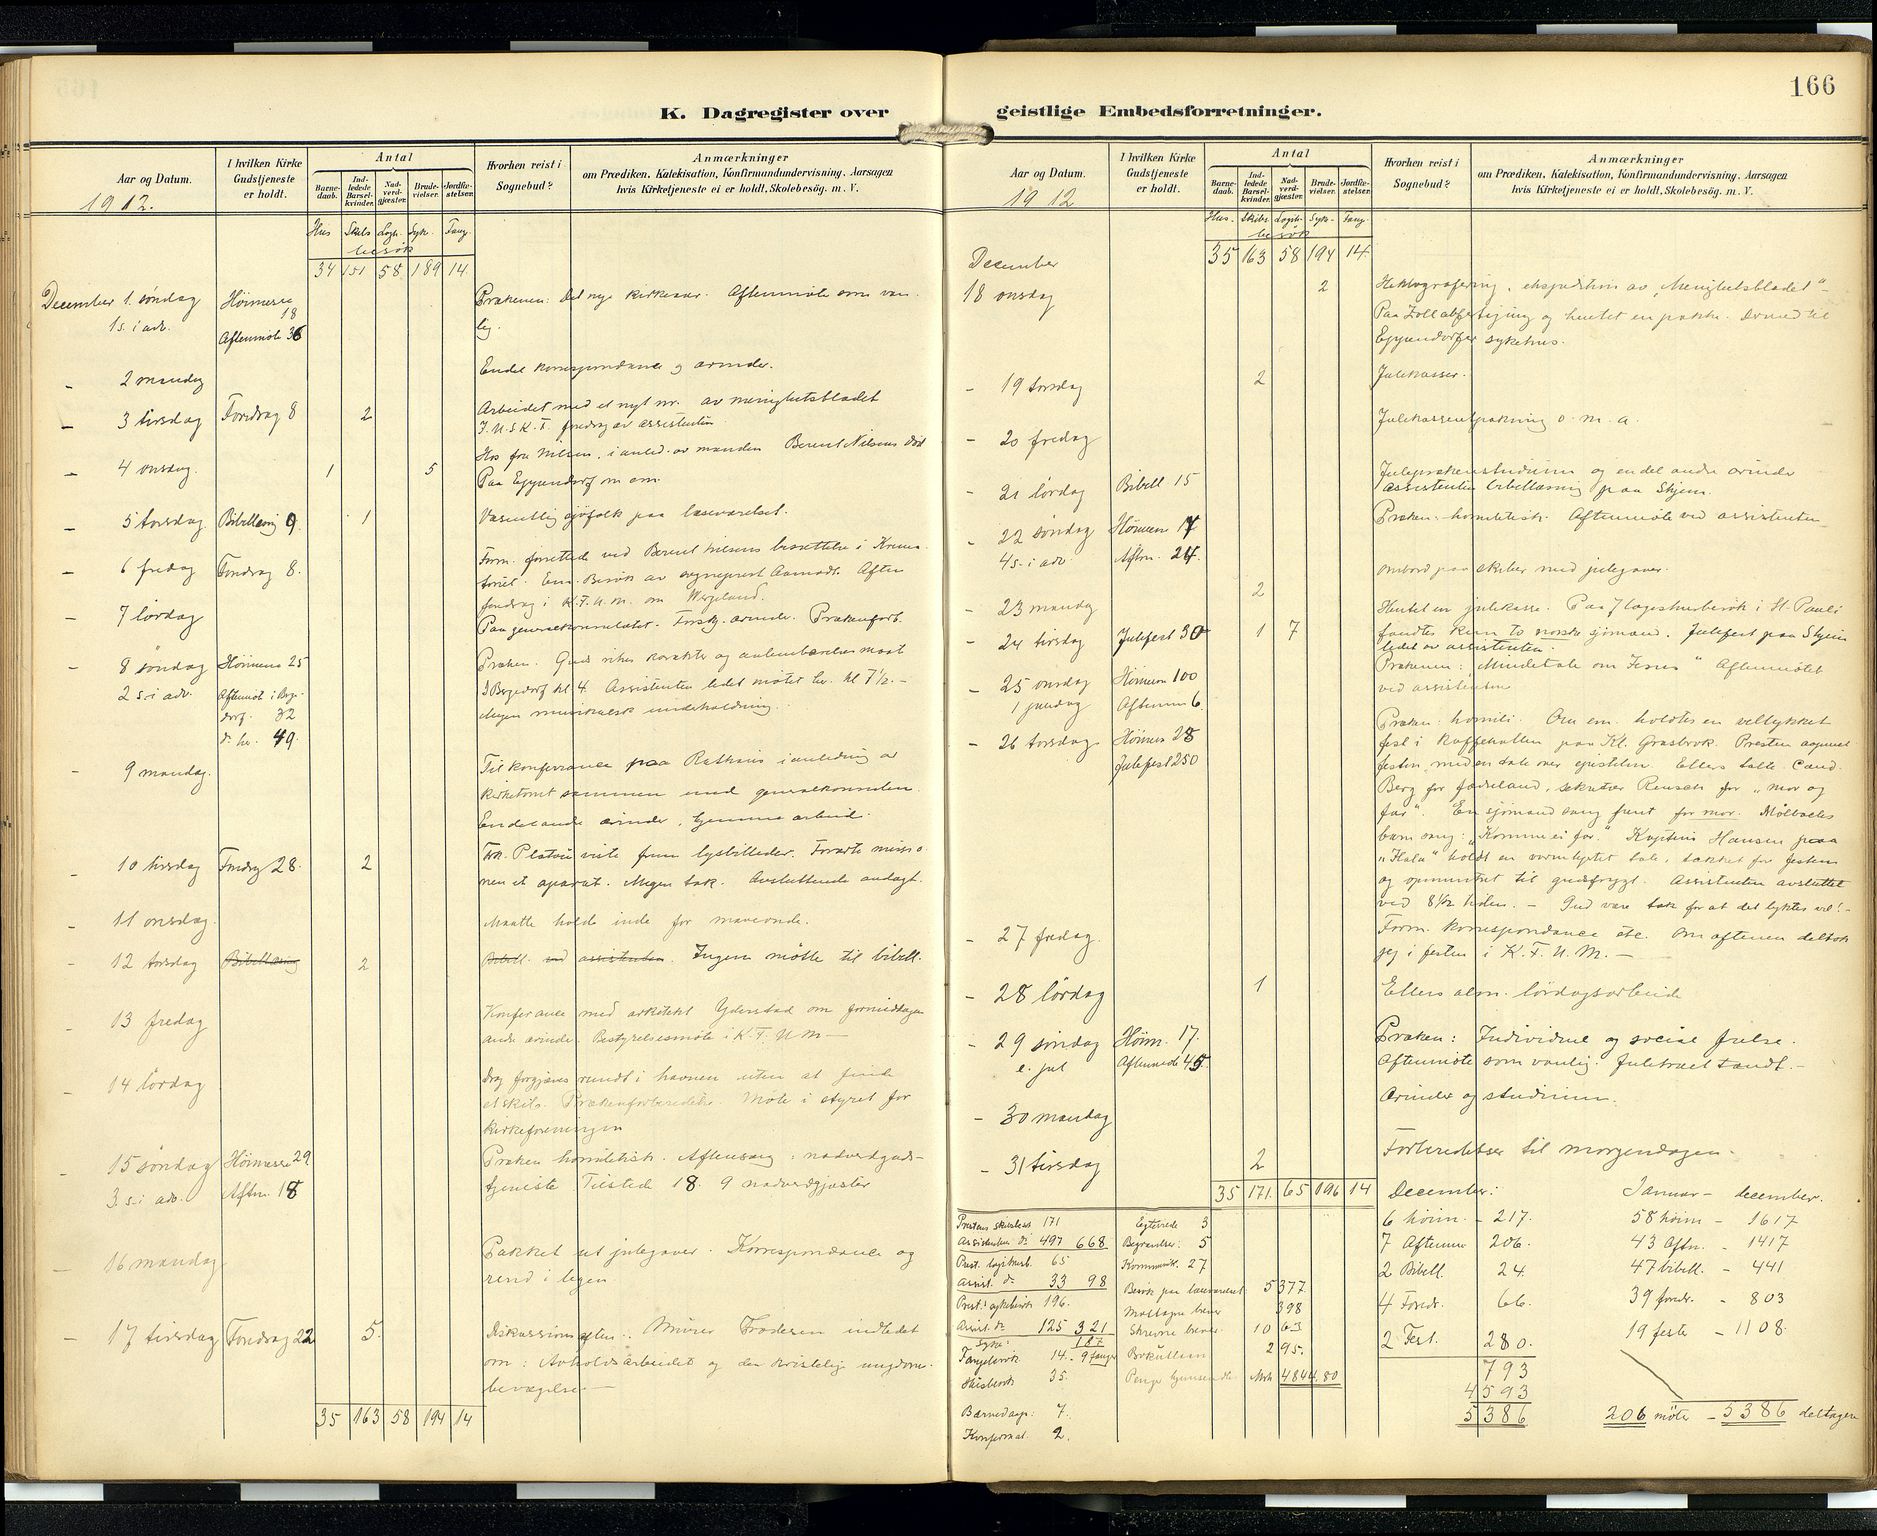 166
K. Dagregister over geistlige Embedsforretninger.
Aar og Datum.
1912.
I hvilken Kirke Gudstjeneste er holdt.
Antal
Barnedaab.
Indledede Barselkvinder.
Nadverdgjæster.
Brudevielser.
Jordfæstelser.
Hvorhen reist i Sognebud?
Anmærkninger
om Prædiken, Katekisation, Konfirmandundervisning, Aarsagen
hvis Kirketjeneste ei er holdt, Skolebesög. m. V.
Hus Skibs Logh. Syk. Fang.
besøk
34 151 58 189 14
December 1. søndag Høimesse 18 Prækenen: Det nye kirkeaar. Aftenmøte som van-
1 s. i adv. Aftenmøte 36 lig.
2 mandag Endel korrespondance og ærinder.
3 tirsdag Foredrag 8 2 Arbeidet med et nyt nr. av menighetsbladet
foredrag av assistenten
4 onsdag. 1 5 Hos fru Nilsen, i anled. av manden Berent Nilsens død
Paa Eppendorf m om.
5 torsdag Bibellæsnig 9. 1 Væsentlig sjøfolk paa læseværelset.
6 fredag Foredrag 8. Form. forrettede ved Berent Nilsens bisættelse i Krema-
toriet. Em. Besøk av sogneprest Aamodt. Aften
foredrag i K.F.U.M. om Wergeland.
7 lørdag Paa generalkonsulatet. Forskj. ærinder. Prækenforb.
8 søndag Høimesse 25 Præken. Guds rikes karakter og
2 s. i adv. Aftenmøt i Berge- I Bergedorf kl 4. Assistenten ledet møtet her kl 7½. -
dorf. 32 Megen musikalsk underholdning.
do her. 49.
9 mandag. Til konferance paa Rathaus i anledning av
kirketomt sammen med generalkonsulen.
Endel andre ærinder. hjemmearbeid.
10 tirsdag Foredrag 28. 2 Frk. Platou viste frem lysbilleder. Forærte missio-
nen et aparat. Megen tak. Avsluttende andagt.
11 onsdag. Maatte holde inde for maveonde.
12 torsdag Bibellæsnig 2 Bibell. ved assistenten. Ingen møtte til bibell.
13 fredag Konferance med arkitekt om formiddagen
andre ærinder. Bestyrelsesmøte i K.F.U.M. —
14 lørdag Drog forgjæves rundt i havnen uten at finde
et skib. Prækenforberedelse. Møte i styret for
kirkeforeningen
15 søndag Høimesse 29 Præken homiletisk. Aftensang: nadverdguds-
3. s. i adv. Aftm. 18 tjeneste Tilstede 18. 9 nadverdgjæster
16 mandag Pakket ut julegaver. Korrespondance og
rend i byen
17 tirsdag Foredrag 22 5. Diskussionsaften: indledet
om: Avholdsarbeidet og den kristelige ungdoms-
bevægelse —
35 163 58 194 14
Aar og Datum.
1912
I hvilken Kirke Gudstjeneste er holdt.
Antal
Barnedaab.
Indledede Barselkvinder.
Nadverdgjæster.
Brudevielser.
Jordfæstelser.
Hvorhen reist i Sognebud?
Anmærkninger
om Prædiken, Katekisation, Konfirmandundervisning, Aarsagen
hvis Kirketjeneste ei er holdt, Skolebesög. m. V.
Hus. Skibs. Logh. Syk. Fang.
besøk
December 35 163 58 194 14.
18 onsdag 2 Hektografering, ekspedition av "Menighetsbladet" -
Paa Zollabfertigung og hentet en pakke. Dermed til
Eppendorfer sykehus.
19 torsdag 2 Julekasser.
20 fredag Julekasseutpakning o. m. a.
21 lørdag Bibell 15 Juleprækenstudium og en del andre ærinder
assistenten bibellæsning paa Skjem.
22 søndag Høimesse 17 Præken: homiletisk. Aftenmøte ved assistenten
4 s. i adv Aftm. 24.
23 mandag 2 ombord paa skiber med julegaver.
24 tirsdag Julefest 30 1 7 Hentet en julekasse. Paa 7 logishusbesøk i St. Pauli
fandtes kun to norske sjømænd. Julefest paa Skjem
ledet av assistenten.
25 onsdag Høimesse 100 Prækenen: Mindetale om Jesus" Aftenmøtet
1 juledag Aftenm 6. ved assistenten
26 torsdag Høimesse 28 Præken homili. Om em. holdtes en vellykket
Julefest 250 fest i kaffehallen paa Kl. Grasbrok. Presten aapnet
festen med en tale over epistelen. Ellers talte Cand.
Berg for fædreland, sekretær Rensch for "mor og
far". En sjømand sang først for mor. Mølbachs
barn sang: "Komme ei far." Kaptein Hansen paa
"Hala" holdt en varmhjertet tale, takket for festen
og opmuntret til gudsfrygt. Assistenten avsluttet
ved 8½ tiden. — Gud være tak for at det lyktes vel! -
27 fredag. Form. korrespondance etc. Om aftenen deltok
jeg i festen i K.F.U.M. —
28 lørdag 1 Ellers alm. lørdagsarbeide
29 søndag Høim. 17. Præken: Individuel og social frelse.
e. jul Aftenmøde 45. Aftenmøte som vanlig. Juletræet tændt. -
30 mandag Ærinder og studium.
31 tirsdag 2 Forberedelser til morgendagen.
35 171. 65 196 14
Prestens skibsbesøk 171
Assistentens do 497 668
Prest. logihusb. 65
Assist. do 33 98
Prest. sykebesøk 196.
Assist. do 125 321
Syke: 187
Fangebesøk 14. - 9 fanger
Husbesøk 35.
Barnedaap: 7.
Konfirmat. 2.
Egteviede 3
Begravelser: 5
Kommunik. 27
Besøk paa læseværelset 5377.
Mottagne breve 398
Skrevne breve 1063
Bokutlaan 295.
Penge hjemsendte Mrk 4844.80
December:
6 høim. - 217.
7 Aftenm 206.
2 Bibell. 24.
4 Foredr. 66.
2 Fest. 280.
793
4593
5386
Januar - december.
58 høim - 1617
43 Aftn. - 1417
47 bibell. - 441
39 foredr. - 803
19 feste - 1108.
206 møter - 5386 deltagere